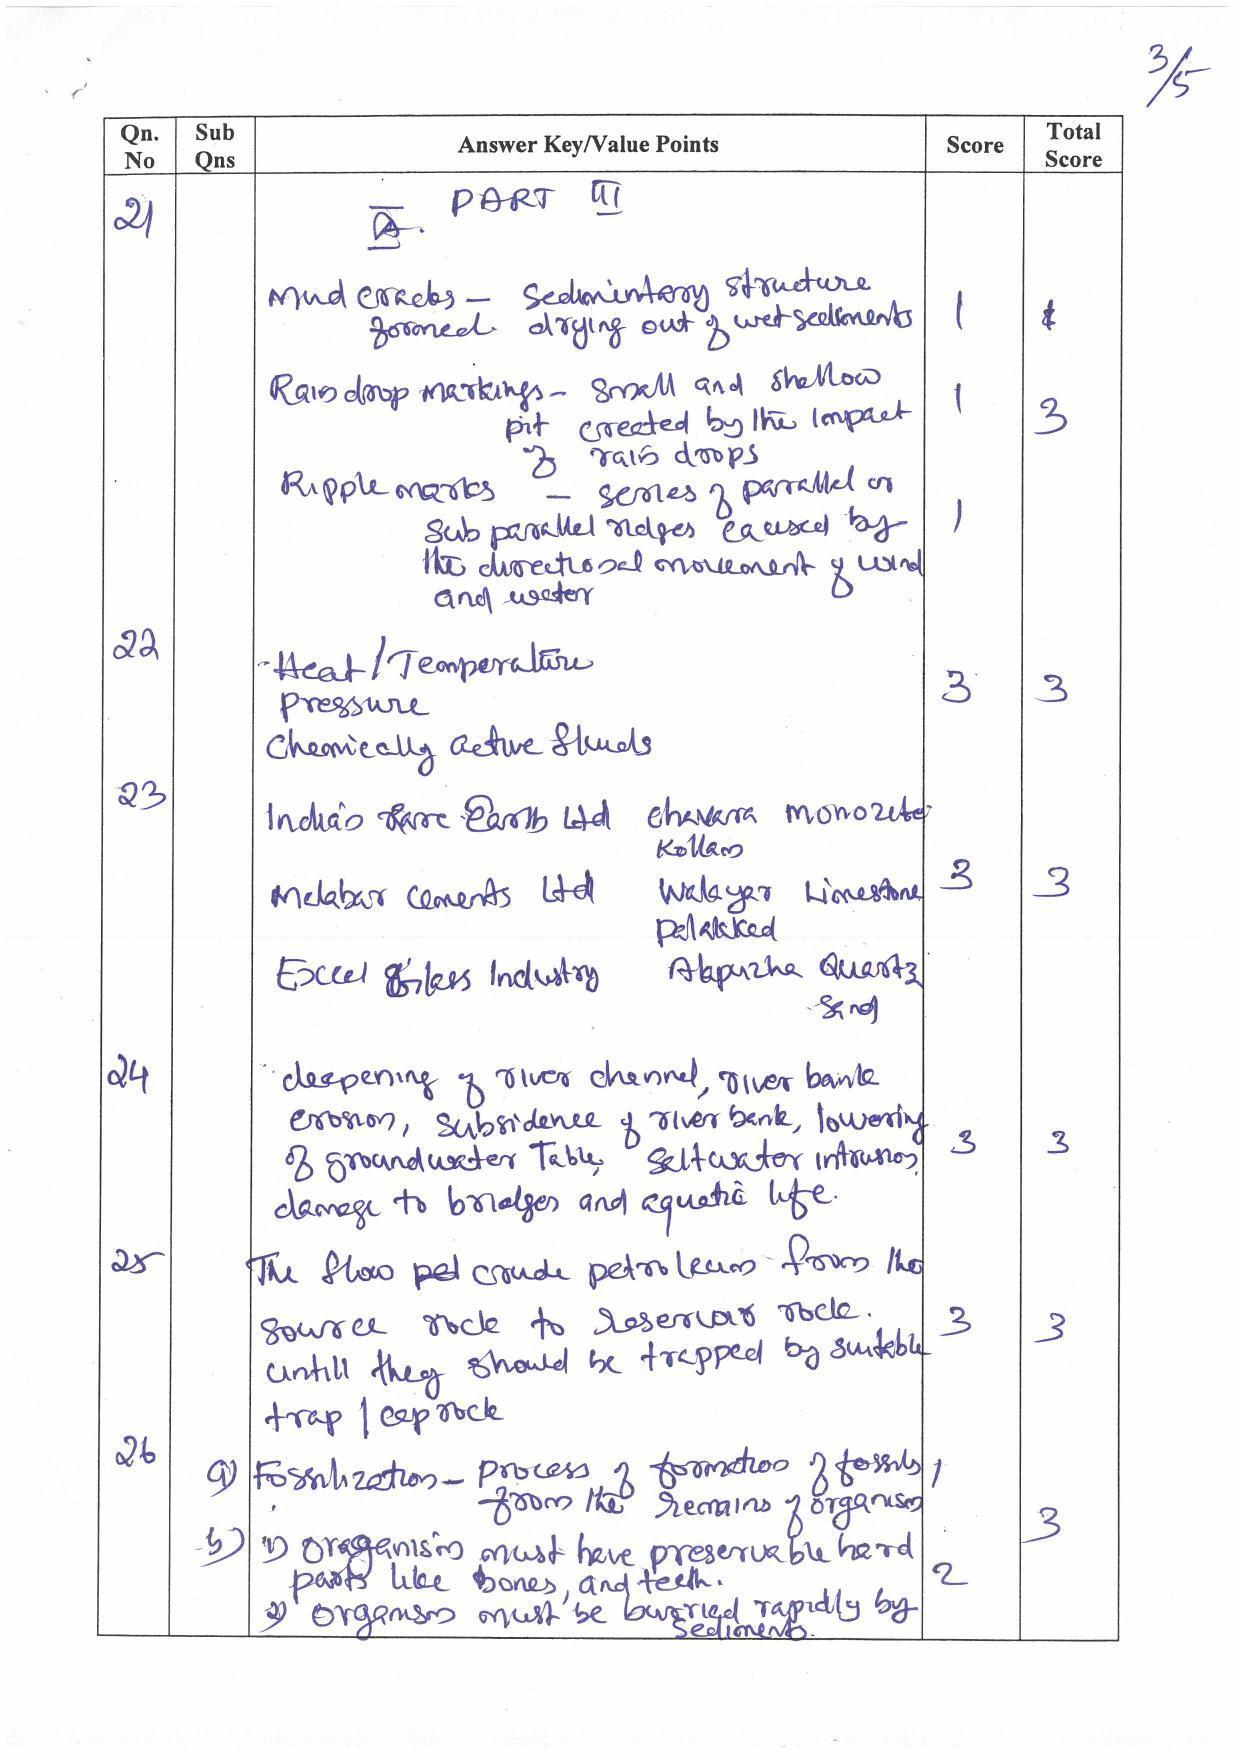 3/5
Qn. No Sub Qns Answer Key/Value Points Score Total Score
21 A. PART III
Mud cracks – Sedimintary structure
formed drying out of wet sediments 1
Rain drop markings – small and shallow 1
pit created by the Impact 3
of rain drops
Ripple marks – series of parallel or
sub parallel ridges caused by 1
the directional movement of wind
and water
22 Heat/Temperature
Pressure 3 3
Chemically active fluids
23 India's Rare Earth Ltd Chavara Monozite
Kollam
Malabar Cements Ltd Walayar Limestone 3 3
Palakkad
Excel Glass Industry Alapuzha Quartz
Sand
24 deepening of river channel, river bank
erosion, subsidence of river bank, lowering
of groundwater Table, Saltwater intrusion, 3 3
damage to bridges and aquatic life.
25 The flow crude petroleum from the
source rock to reservoir rock. 3 3
untill they should be trapped by suitable
trap / cap rock
26 a) Fossilization – Process of formation of fossils 1
from the remains of organism 3
b) 1) Oraganism must have preservable hard
parts like bones, and teeth. 2
2) Organism must be burried rapidly by
sediments.